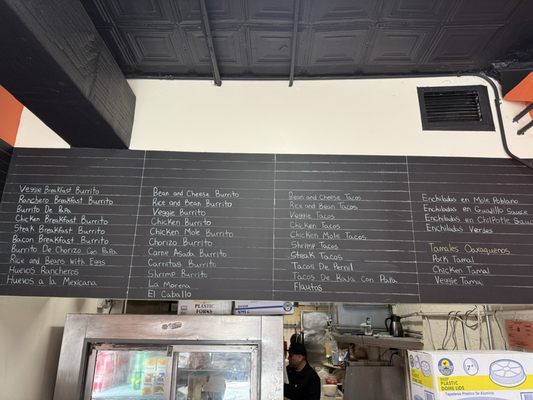 Veggie Breakfast Burrito
Ranchero Breakfast Burrito
Burrito De Papa
Chicken Breakfast Burrito
Steak Breakfast Burrito
Bacon Breakfast Burrito
Burrito De Chorizo Con Papa
Rice and Beans with Eggs
Huevos Rancheros
Huevos a la Mexicana
Bean and Cheese Burrito
Rice and Bean Burrito
Veggie Burrito
Chicken Burrito
Chicken Mole Burrito
Chorizo Burrito
Carne Asada Burrito
Carnitas Burrito
Shrimp Burrito
La Morena
El Caballo
Bean and Cheese Tacos
Rice and Bean Tacos
Veggie Tacos
Chicken Tacos
Chicken Mole Tacos
Shrimp Tacos
Steak Tacos
Tacos De Pernil
Tacos De Rajas Con Papa
Flautas
Enchiladas en Mole Poblano
Enchiladas en Guajillo Sauce
Enchiladas en Chilpotle Sauce
Enchiladas Verdes
Tamales Oaxaquenos
Pork Tamal
Chicken Tamal
Veggie Tamal
PLASTIC
FORKS
BEST
PLASTIC
DOME LIDS
7"